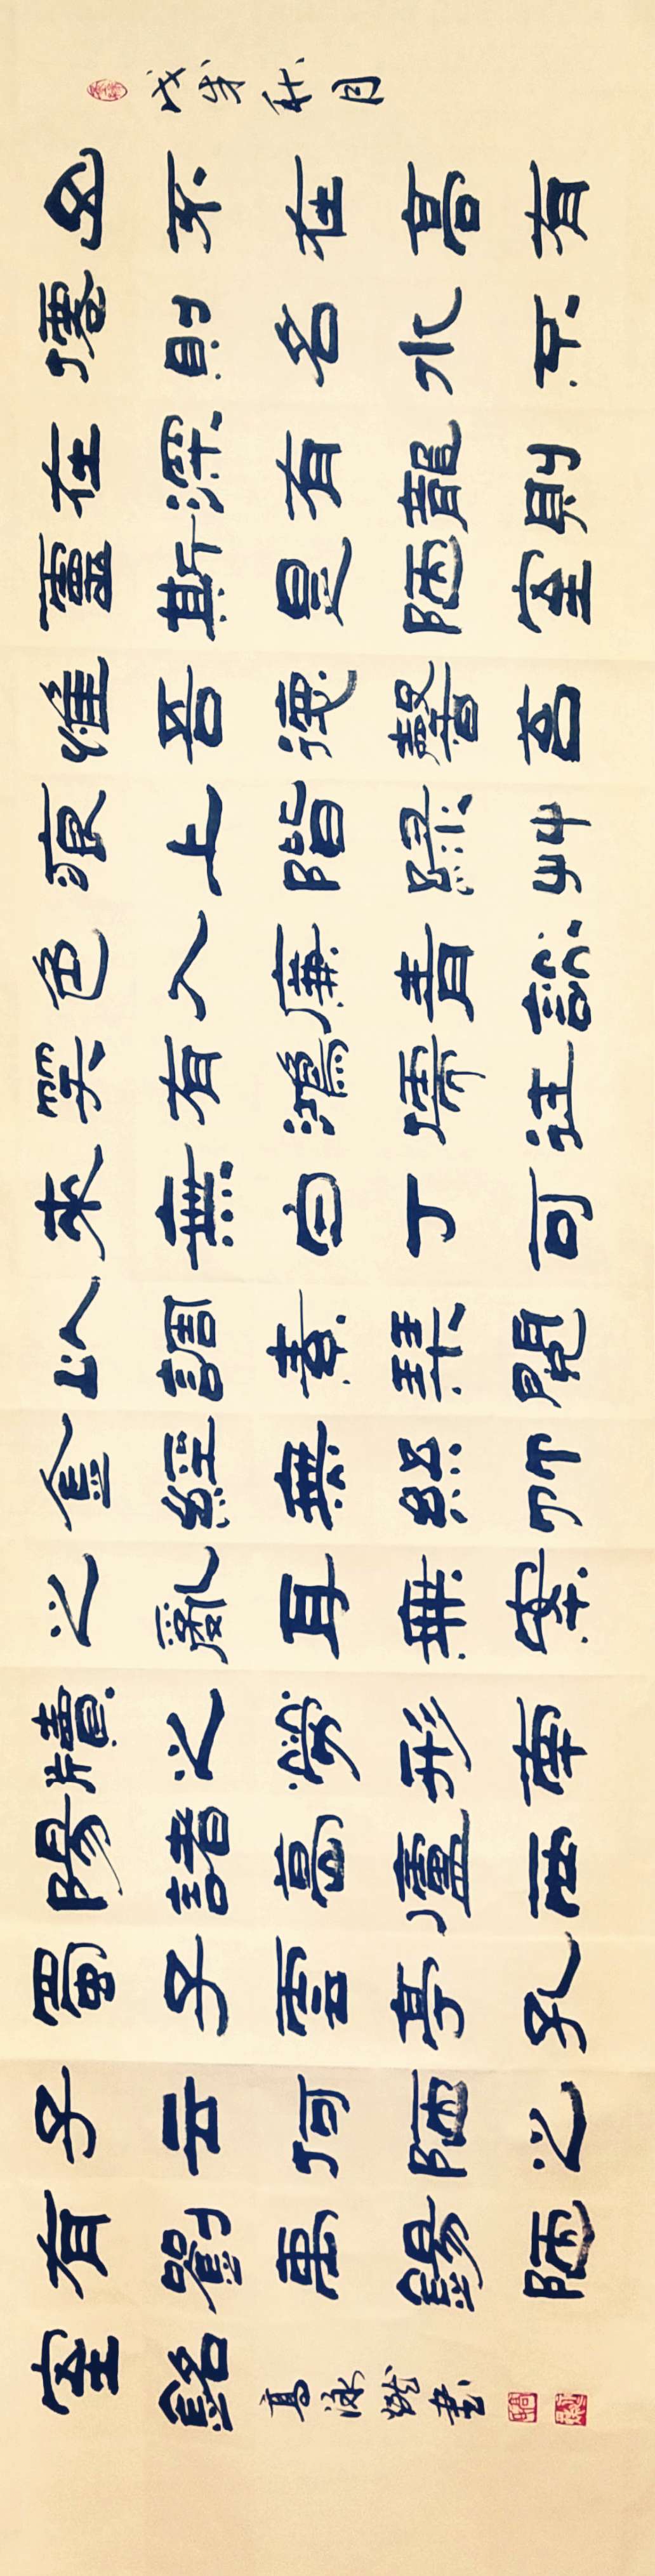 戊戌秋月
山不在高有
僊則名水不
在深有龍則
靈斯是陋室
惟吾德馨苔
痕上階綠艸
色入廉青談
笑有鴻儒往
來無白丁可
以調素琴閱
金經無絲竹
之亂耳無案
牘之勞形南
陽諸葛廬西
蜀子雲亭孔
子云何陋之
有劉禹錫陋
室銘
高泳書